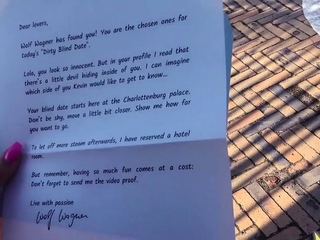 Dear lovers,
Wolf Wagner has found you! You are the chosen ones for
today's "Dirty Blind Date".
Lola, you look so innocent. But in your profile I read that
there's a little devil hiding inside of you. I can imagine
which side of you Kevin would like to get to know...
Your blind date starts here at the Charlottenburg palace.
Don't be shy, move a little bit closer. Show me how far
you want to go.
To let off more steam afterwards, I have reserved a hotel
room.
But remember, having so much fun comes at a cost:
Don't forget to send me the video proof.
Live with passion
Wolf Wagner